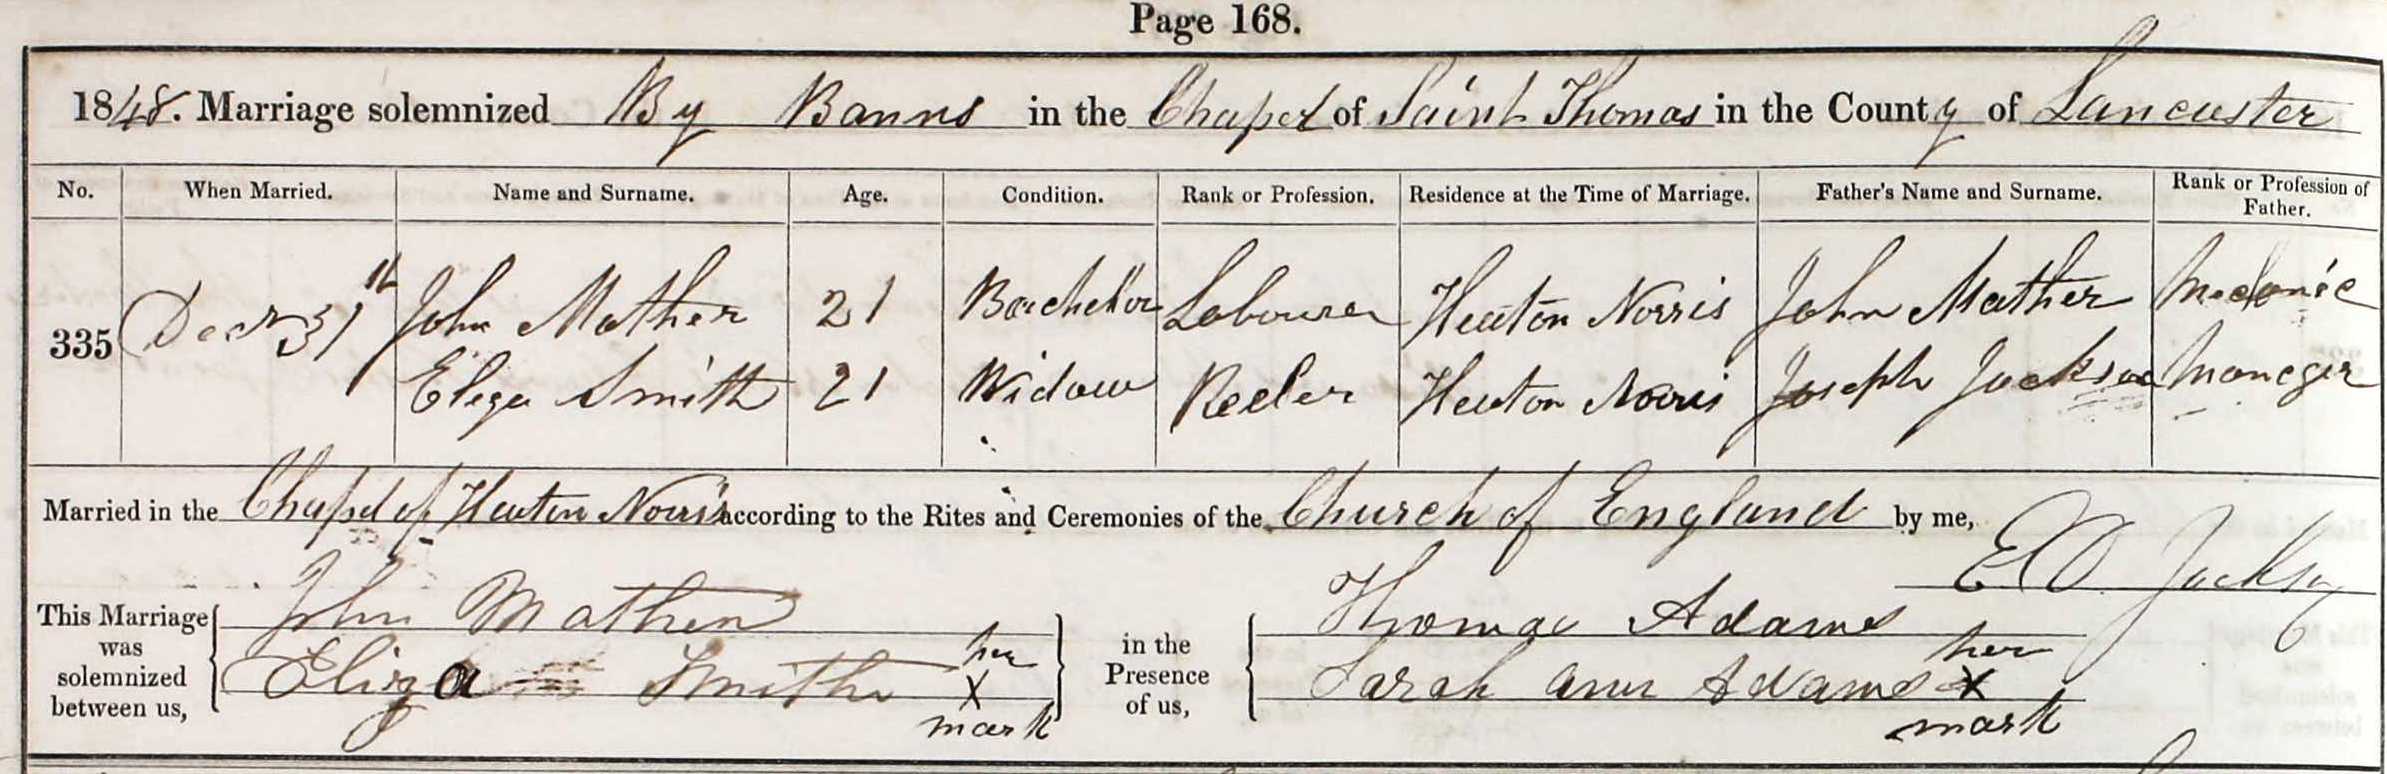 Page 168.
1848. Marriage solemnized By Banns in the Chapel of Saint Thomas in the County of Lancaster
No. When Married. Name and Surname. Age. Condition. Rank or Profession. Residence at the Time of Marriage. Father's Name and Surname. Rank or Profession of Father.
335 Decr 31th John Mather 21 Bachelor Labourer Heaton Norris John Mather
Eliza Smith 21 Widow Reeler Heaton Norris Joseph Jackson Manager
Married in the Chapel of Heaton Norris according to the Rites and Ceremonies of the Church of England by me, Jackson
This Marriage was solemnized between us, John Mather in the Presence of us, Thomas Adams
Eliza Smith her X mark Sarah Ann Adams her X mark